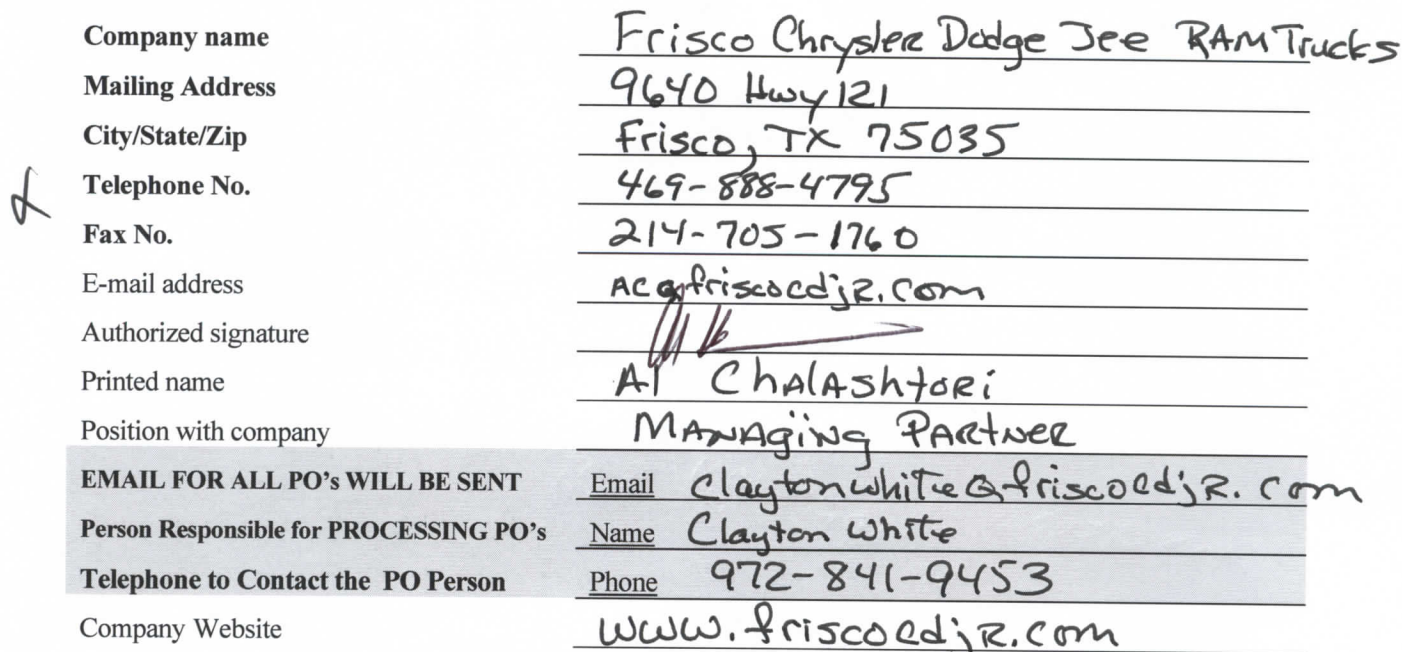 Company name Frisco Chrysler Dodge Jee RAM Trucks
Mailing Address 9640 Hwy 121
City/State/Zip Frisco, TX 75035
Telephone No. 469-888-4795
Fax No. 214-705-1760
E-mail address AC@friscocdjR.com
Authorized signature
Printed name Al ChalAshtoRi
Position with company MANAgiNg PARtNeR
EMAIL FOR ALL PO's WILL BE SENT Email Claytonwhite@friscocdjR.com
Person Responsible for PROCESSING PO's Name Clayton White
Telephone to Contact the PO Person Phone 972-841-9453
Company Website www.friscocdjR.com